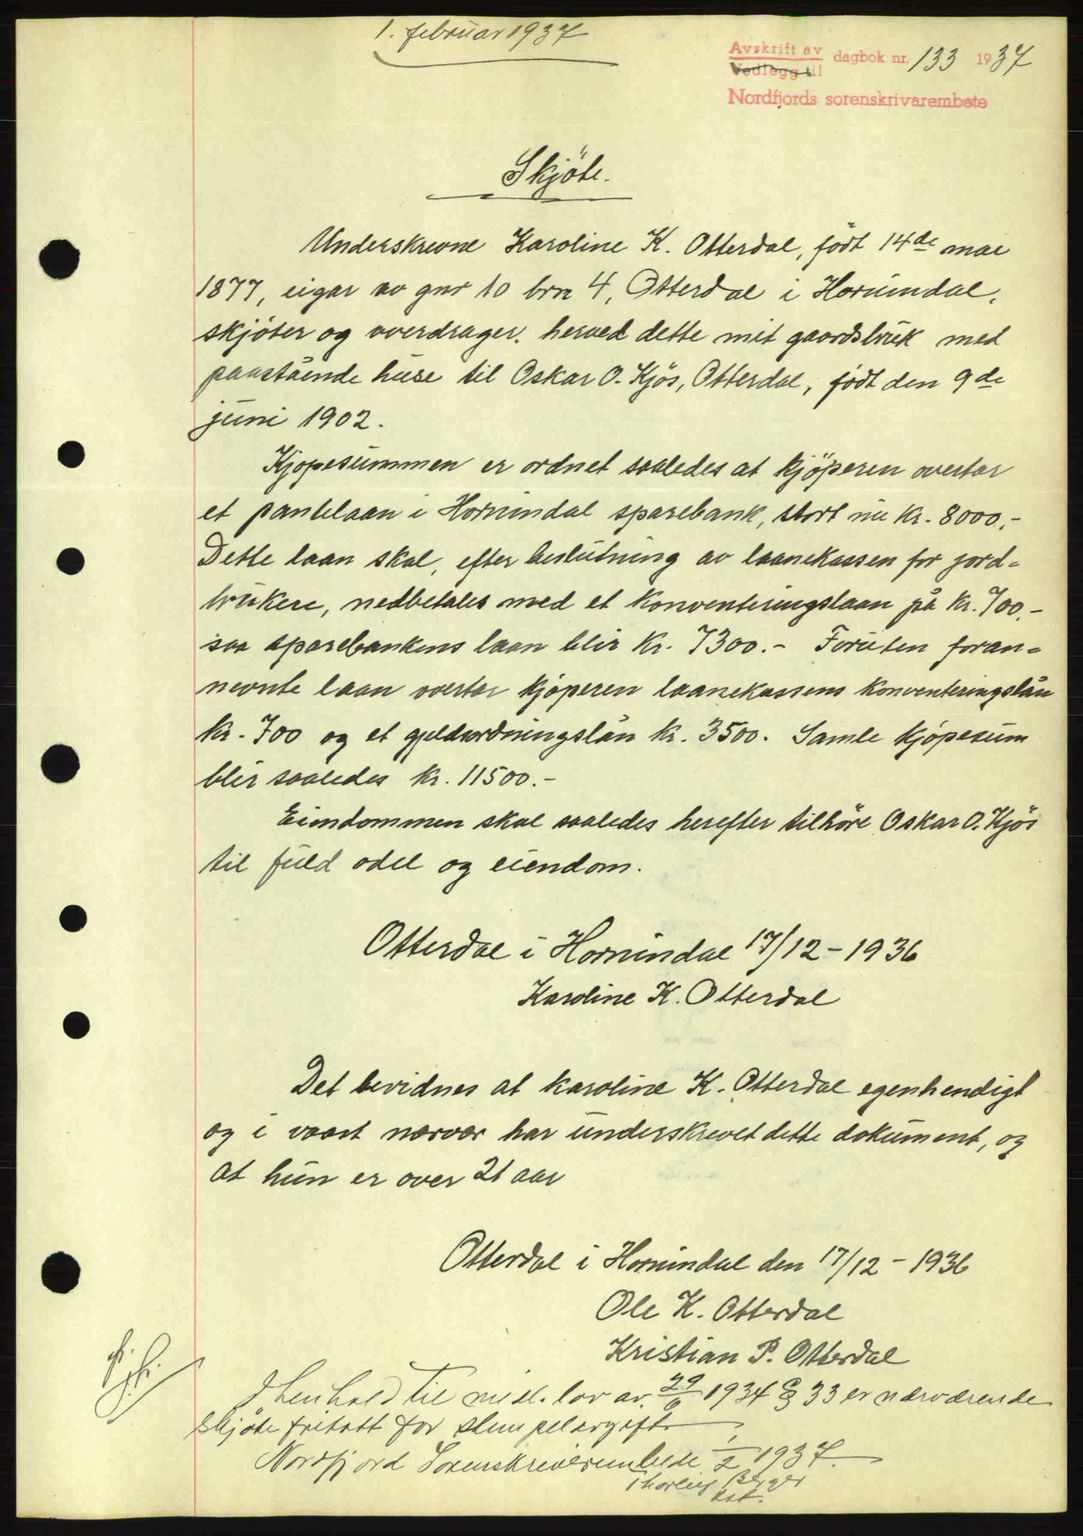 1. februar 1937
Avskrift av dagbok nr. 133 1937
Vedlegg til
Nordfjords sorenskrivarembete
Skjöte.
Underskrevne Karoline K. Otterdal, födt 14de mai
1877, eigar av gnr 10 brn 4, Otterdal i Hornindal,
skjöter og overdrager herved dette mit gaardsbruk med
paastående huse til Oskar O. Kjös, Otterdal, födt den 9de
juni 1902.
Kjøpesummen er ordnet saaledes at kjöperen overtar
et pantelaan i Hornindal sparebank, stort nu kr. 8000,-
Dette laan skal, efter beslutning av laanekassen for jord-
brukere, nedbetales med et konverteringslaan på kr. 700,-
saa sparebankens laan blir kr. 7300.- Foruten foran-
nevnte laan overtar kjöperen laanekassens konverteringslån
kr. 700 og et gjeldsordningslån kr. 3500. Samle kjöpesum
blir saaledes kr. 11500.-
Eiendommen skal saaledes herefter tilhöre Oskar O. Kjös
til fuld odel og eiendom.
Otterdal i Hornindal 17/12 - 1936
Karoline K. Otterdal
Det bevidnes at Karoline K. Otterdal egenhendigt
og i vaart nærvær har underskrevet dette dokument, og
at hun er over 21 aar
Otterdal i Hornindal den 17/12 - 1936
Ole K. Otterdal
Kristian P. Otterdal
I henhold til midl. lov av 29/6 1934 § 33 er nærværende
skjöte fritatt for stempelavgift
Nordfjord Sorenskriverembede 1/2 1937.